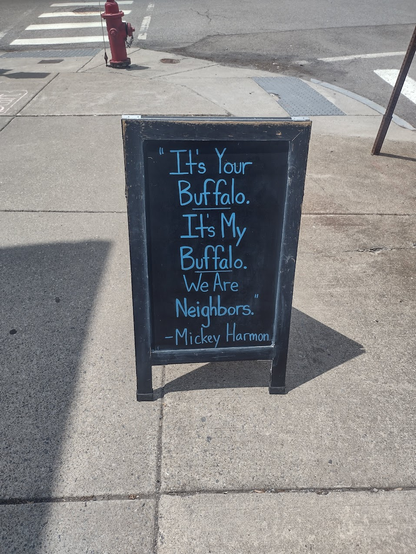 "It's Your
Buffalo.
It's My
Buffalo.
We Are
Neighbors."
-Mickey Harmon